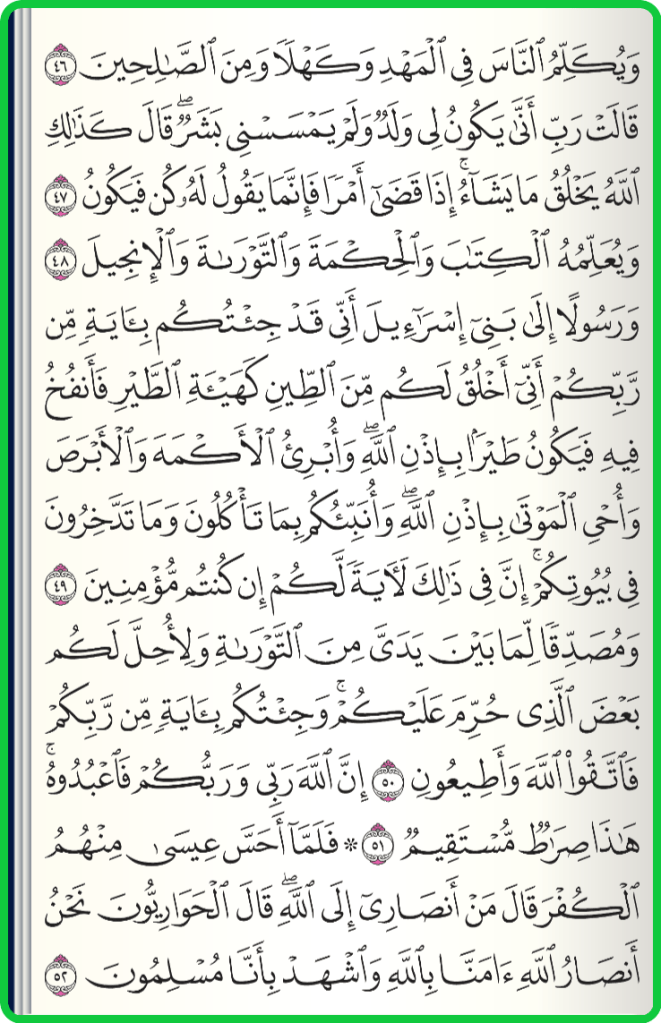 وَيُكَلِّمُ ٱلنَّاسَ فِي ٱلۡمَهۡدِ وَكَهۡلٗا وَمِنَ ٱلصَّٰلِحِينَ ٤٦
قَالَتۡ رَبِّ أَنَّىٰ يَكُونُ لِي وَلَدٞ وَلَمۡ يَمۡسَسۡنِي بَشَرٞۖ قَالَ كَذَٰلِكِ
ٱللَّهُ يَخۡلُقُ مَا يَشَآءُۚ إِذَا قَضَىٰٓ أَمۡرٗا فَإِنَّمَا يَقُولُ لَهُۥ كُن فَيَكُونُ ٤٧
وَيُعَلِّمُهُ ٱلۡكِتَٰبَ وَٱلۡحِكۡمَةَ وَٱلتَّوۡرَىٰةَ وَٱلۡإِنجِيلَ ٤٨
وَرَسُولًا إِلَىٰ بَنِيٓ إِسۡرَٰٓءِيلَ أَنِّي قَدۡ جِئۡتُكُم بِـَٔايَةٖ مِّن
رَّبِّكُمۡ أَنِّيٓ أَخۡلُقُ لَكُم مِّنَ ٱلطِّينِ كَهَيۡـَٔةِ ٱلطَّيۡرِ فَأَنفُخُ
فِيهِ فَيَكُونُ طَيۡرَۢا بِإِذۡنِ ٱللَّهِۖ وَأُبۡرِئُ ٱلۡأَكۡمَهَ وَٱلۡأَبۡرَصَ
وَأُحۡيِ ٱلۡمَوۡتَىٰ بِإِذۡنِ ٱللَّهِۖ وَأُنَبِّئُكُم بِمَا تَأۡكُلُونَ وَمَا تَدَّخِرُونَ
فِي بُيُوتِكُمۡۚ إِنَّ فِي ذَٰلِكَ لَأٓيَةٗ لَّكُمۡ إِن كُنتُم مُّؤۡمِنِينَ ٤٩
وَمُصَدِّقٗا لِّمَا بَيۡنَ يَدَيَّ مِنَ ٱلتَّوۡرَىٰةِ وَلِأُحِلَّ لَكُم
بَعۡضَ ٱلَّذِي حُرِّمَ عَلَيۡكُمۡۚ وَجِئۡتُكُم بِـَٔايَةٖ مِّن رَّبِّكُمۡ
فَٱتَّقُواْ ٱللَّهَ وَأَطِيعُونِ ٥٠ إِنَّ ٱللَّهَ رَبِّي وَرَبُّكُمۡ فَٱعۡبُدُوهُۚ
هَٰذَا صِرَٰطٞ مُّسۡتَقِيمٞ ٥١ ۞ فَلَمَّآ أَحَسَّ عِيسَىٰ مِنۡهُمُ
ٱلۡكُفۡرَ قَالَ مَنۡ أَنصَارِيٓ إِلَى ٱللَّهِۖ قَالَ ٱلۡحَوَارِيُّونَ نَحۡنُ
أَنصَارُ ٱللَّهِ ءَامَنَّا بِٱللَّهِ وَٱشۡهَدۡ بِأَنَّا مُسۡلِمُونَ ٥٢